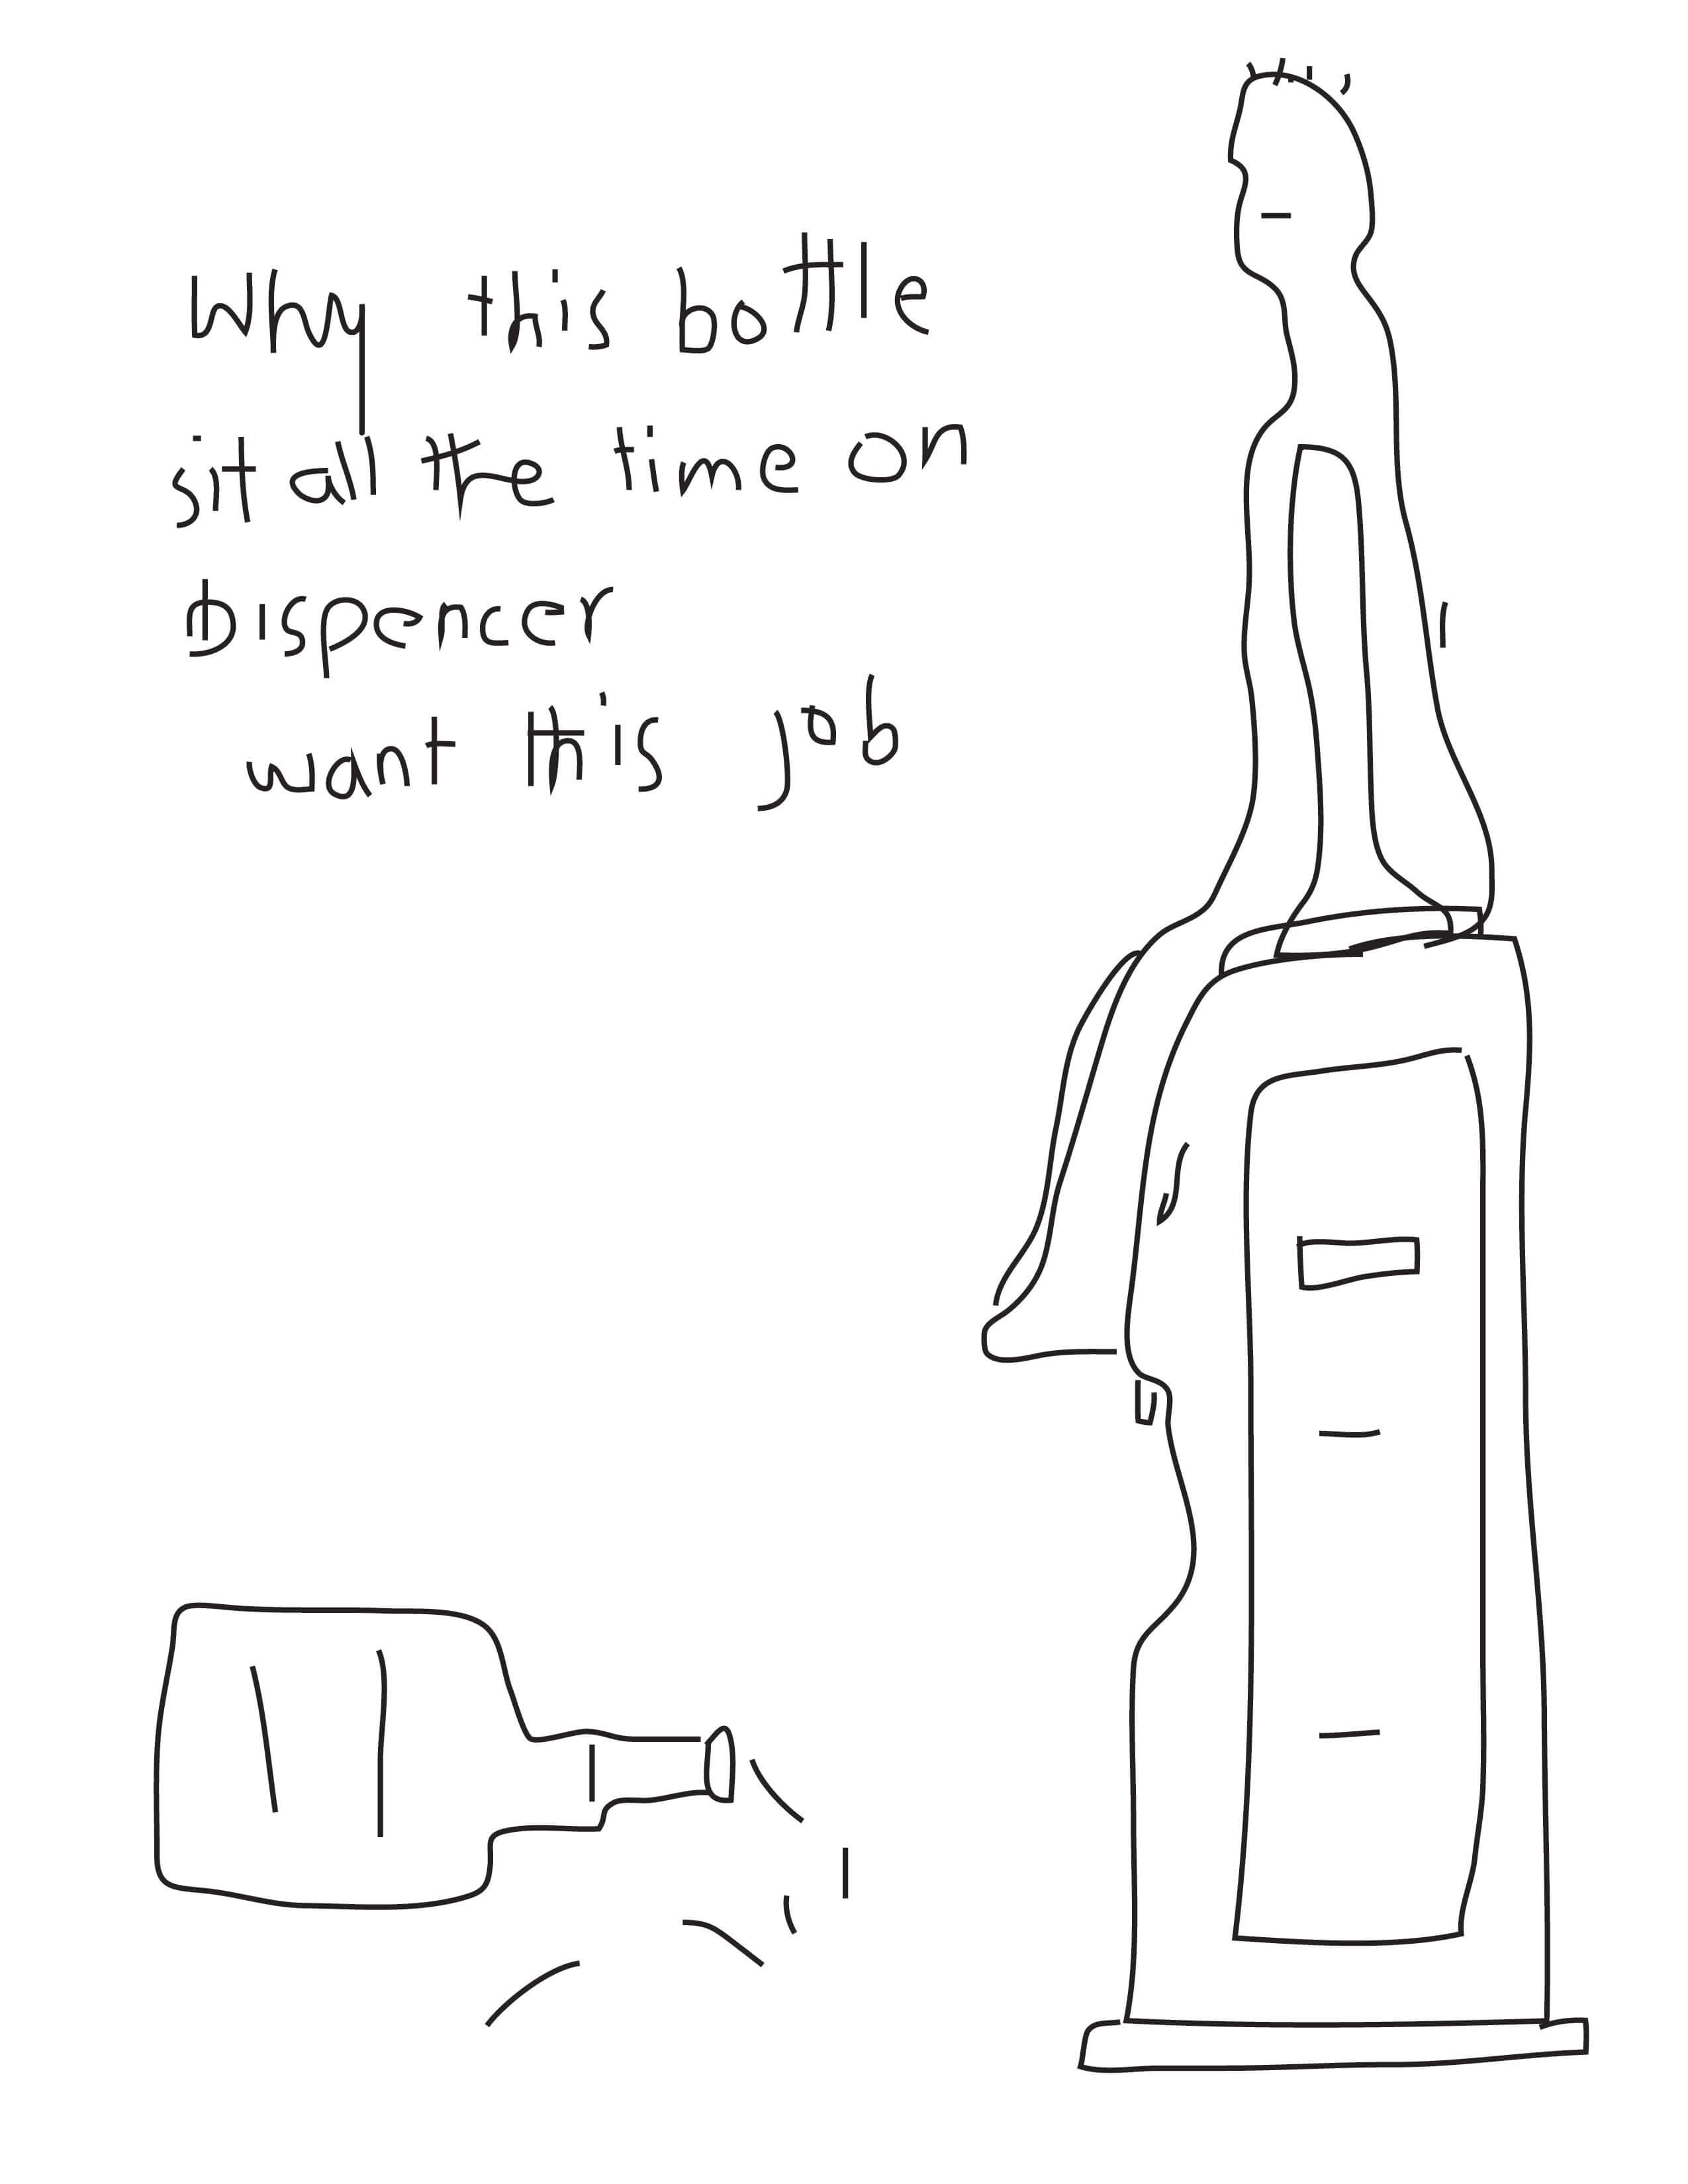 Why this bottle
sit all the time on
Dispencer
want this job